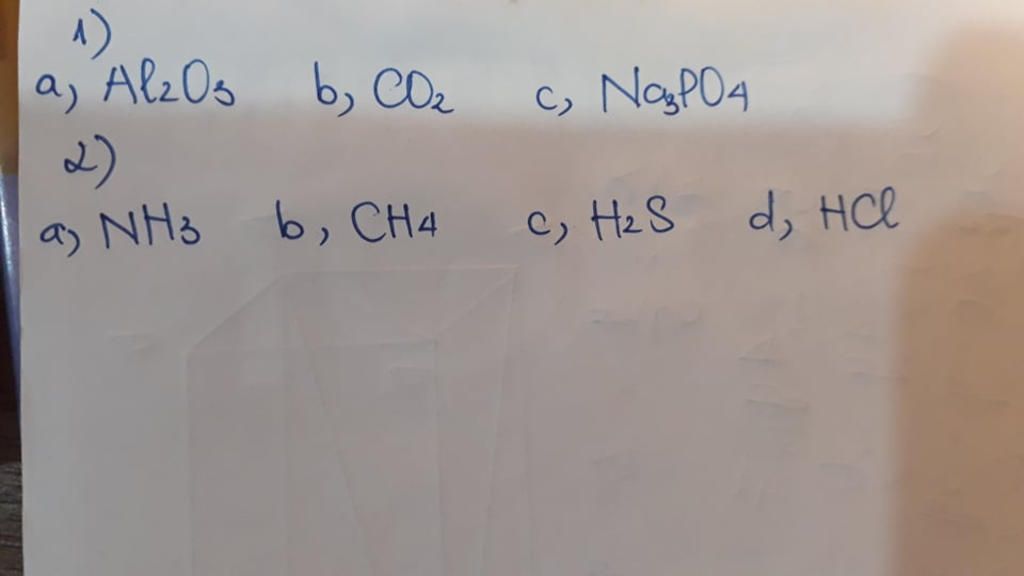 1)
a, Al2O3 b, CO2 c, Na3PO4
2)
a, NH3 b, CH4 c, H2S d, HCl